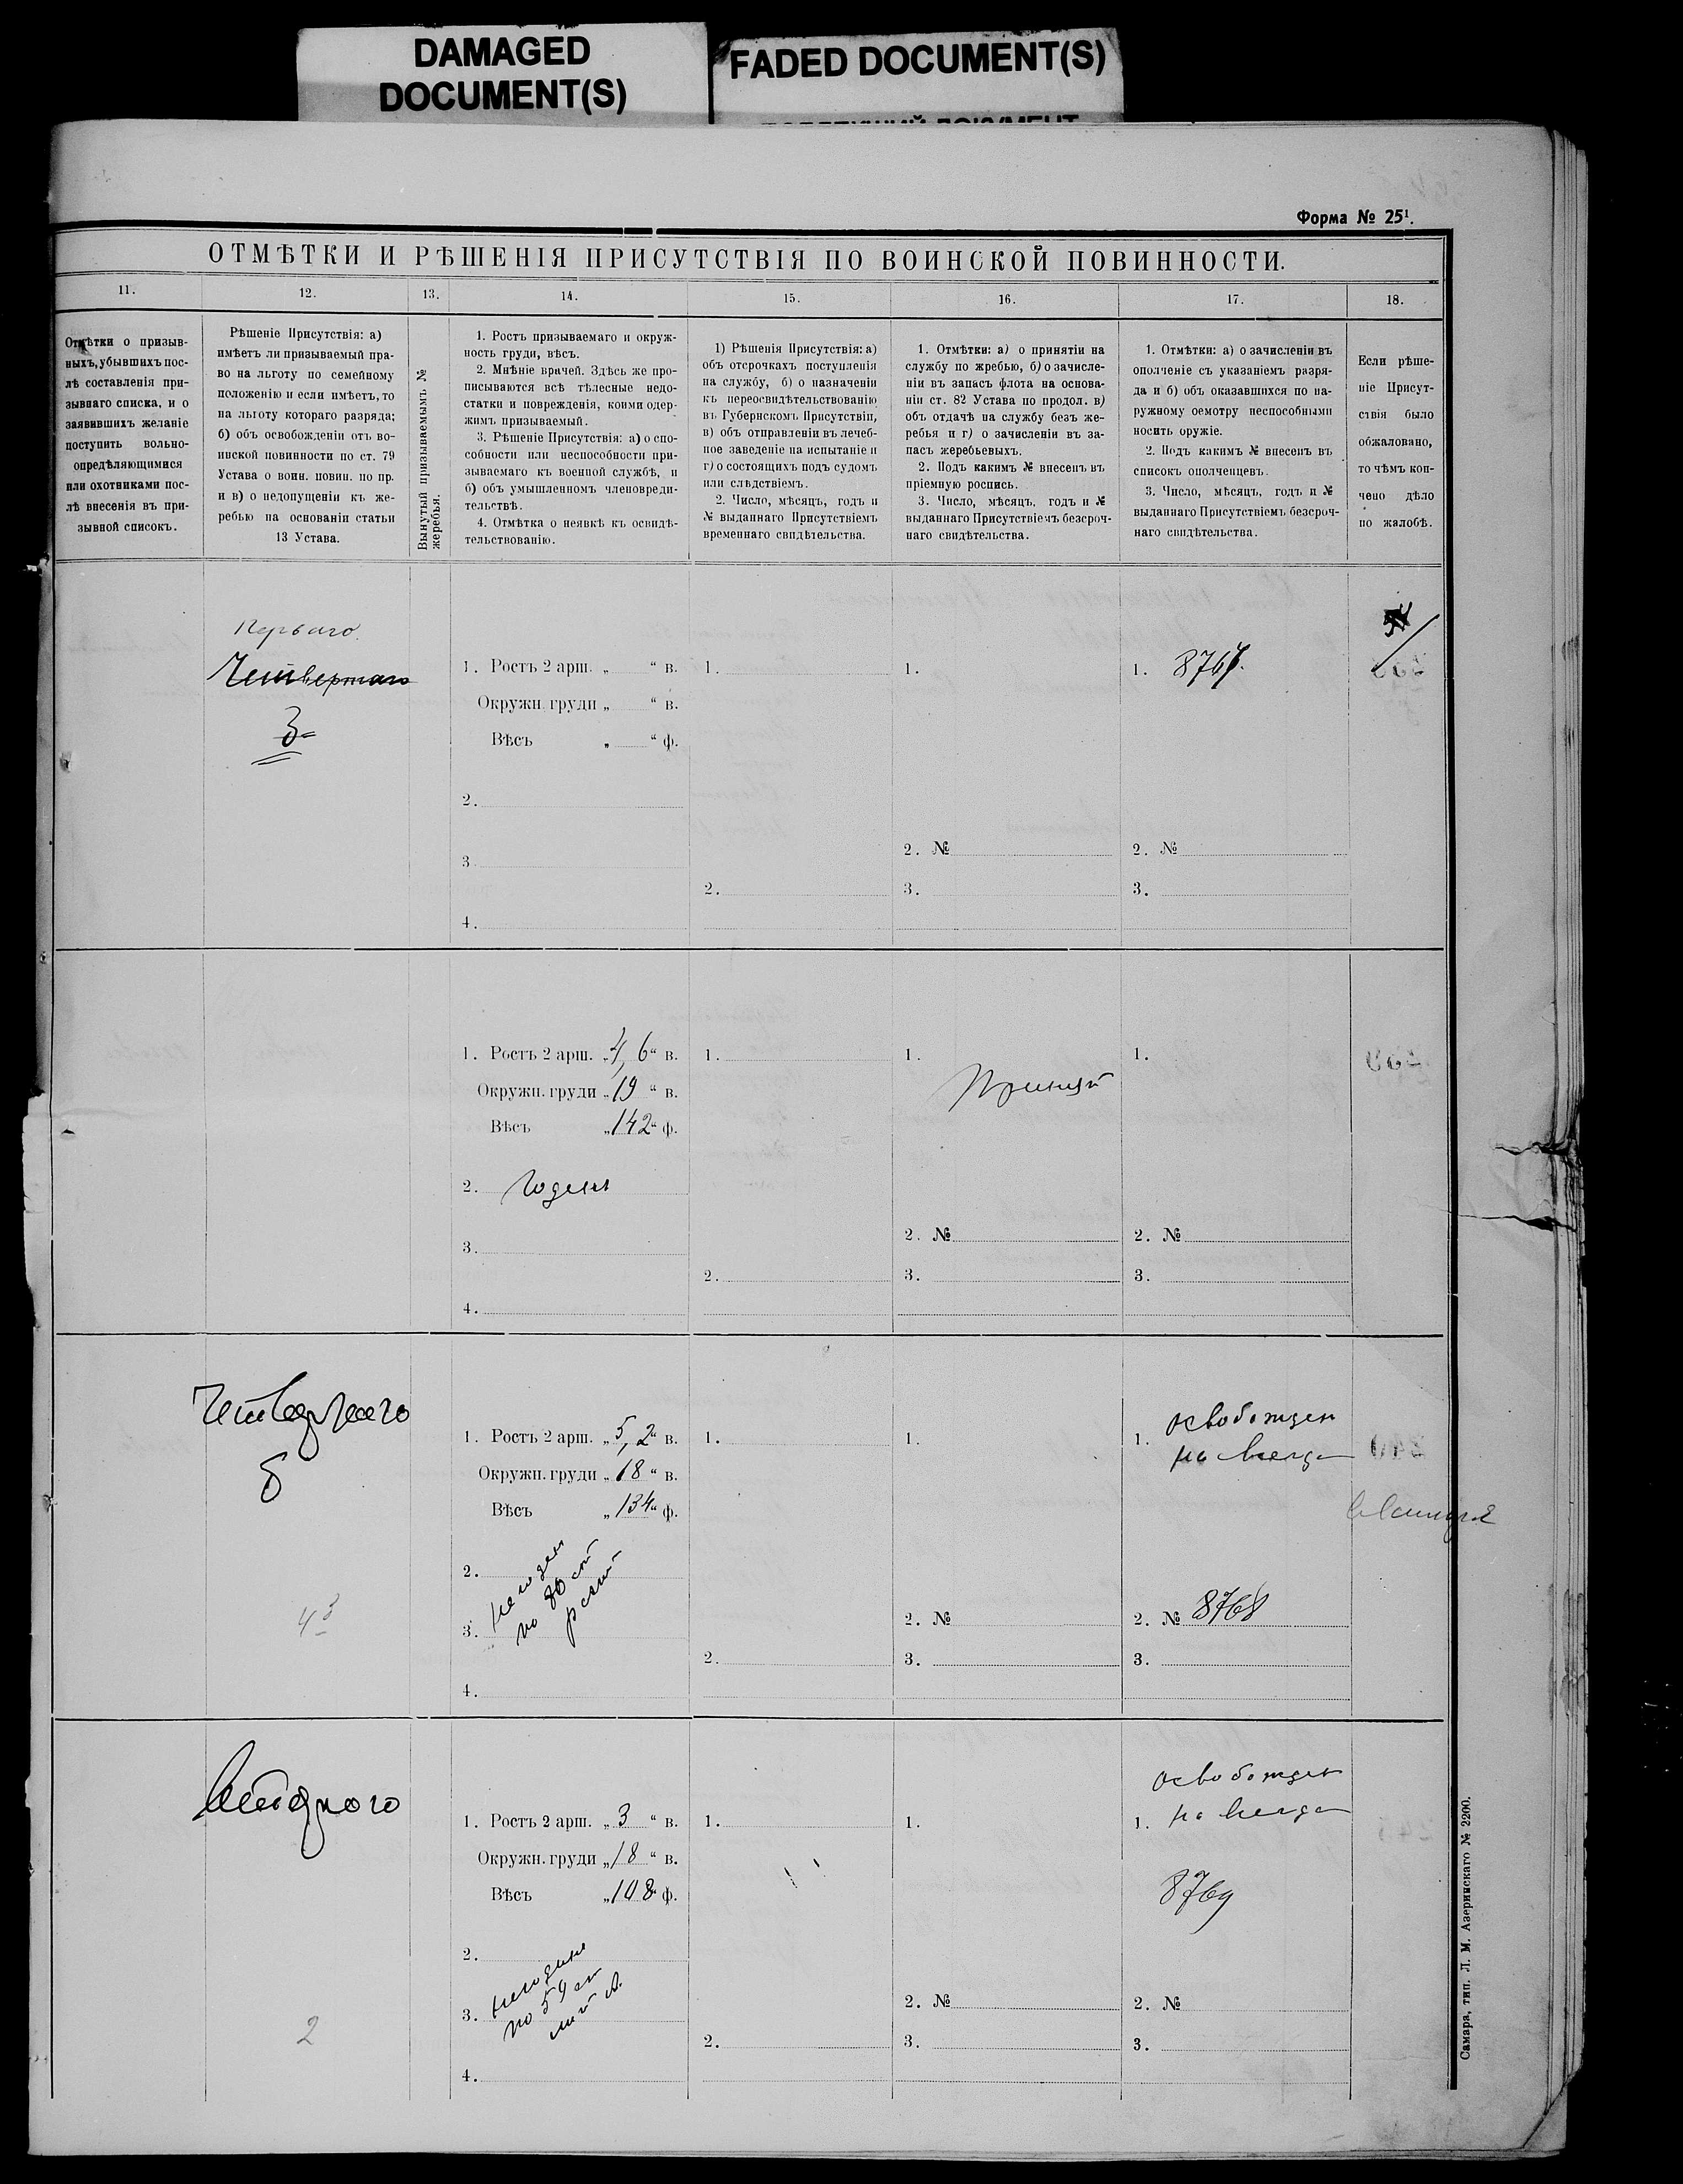 DAMAGED
DOCUMENT(S)
FADED DOCUMENT(S)
Форма № 25¹.
ОТМѢТКИ И РѢШЕНІЯ ПРИСУТСТВІЯ ПО ВОИНСКОЙ ПОВИННОСТИ.
11.
12.
13.
14.
15.
16.
17.
18.
Отмѣтки о призыв-
ныхъ, убывшихъ пос-
лѣ составленія при-
зывнаго списка, и о
заявившихъ желаніе
поступить вольно-
опредѣляющимися
или охотниками пос-
лѣ внесенія въ при-
зывной списокъ.
Рѣшеніе Присутствія: а)
имѣетъ ли призываемый пра-
во на льготу по семейному
положенію и если имѣетъ, то
на льготу котораго разряда;
б) объ освобожденіи отъ во-
инской повинности по ст. 79
Устава о воин. повин. по пр.
и в) о недопущеніи къ же-
ребью на основаніи статьи
13 Устава.
Вынутый призываемымъ №
жеребья.
1. Ростъ призываемаго и окруж-
ность груди, вѣсъ.
2. Мнѣніе врачей. Здѣсь же про-
писываются всѣ тѣлесные недо-
статки и поврежденія, коими одер-
жимъ призываемый.
3. Рѣшеніе Присутствія: а) о спо-
собности или неспособности при-
зываемаго къ военной службѣ, и
б) объ умышленномъ членовреди-
тельствѣ.
4. Отмѣтка о неявкѣ къ освидѣ-
тельствованію.
1) Рѣшенія Присутствія: а)
объ отсрочкахъ поступленія
на службу, б) о назначеніи
къ переосвидѣтельствованію
въ Губернскомъ Присутствіи,
в) объ отправленіи въ лечеб-
ное заведеніе на испытаніе и
г) о состоящихъ подъ судомъ
или слѣдствіемъ.
2. Число, мѣсяцъ, годъ и
№ выданнаго Присутствіемъ
временнаго свидѣтельства.
1. Отмѣтки: а) о принятіи на
службу по жребью, б) о зачисле-
ніи въ запасъ флота на основа-
ніи ст. 82 Устава по продол. в)
объ отдачѣ на службу безъ же-
ребья и г) о зачисленіи въ за-
пасъ жеребьевыхъ.
2. Подъ какимъ № внесенъ въ
пріемную роспись.
3. Число, мѣсяцъ, годъ и №
выданнаго Присутствіемъ безсроч-
наго свидѣтельства.
1. Отмѣтки: а) о зачисленіи въ
ополченіе съ указаніемъ разря-
да и б) объ оказавшихся по на-
ружному осмотру неспособными
носить оружіе.
2. Подъ какимъ № внесенъ въ
списокъ ополченцевъ.
3. Число, мѣсяцъ, годъ и №
выданнаго Присутствіемъ безсроч-
наго свидѣтельства.
Если рѣше-
ніе Присут-
ствія было
обжаловано,
то чѣмъ кон-
чено дѣло
по жалобѣ.
Перваго
Четвертаго
3
1. Ростъ 2 арш. „ “ в.
Окружн. груди „ “ в.
Вѣсъ „ “ ф.
2.
3.
4.
1.
2.
1.
2. №
3.
1. 8767.
2. №
3.
1. Ростъ 2 арш. „4,6“ в.
Окружн. груди „19“ в.
Вѣсъ „142“ ф.
2. Годенъ
3.
4.
1.
2.
1.
Принятъ
2. №
3.
1.
2. №
3.
Четвертаго
б
4 3
1. Ростъ 2 арш. „5,2“ в.
Окружн. груди „18“ в.
Вѣсъ „134“ ф.
2.
негоден
по 80 ст
3.
4.
1.
2.
1.
2. №
3.
освобожден
1.
на всегда
2. № 8768
3.
2
1. Ростъ 2 арш. „3“ в.
Окружн. груди „18“ в.
Вѣсъ „108“ ф.
2.
негоден
по 59 ст
лит А.
3.
4.
1.
2.
1.
2. №
3.
освобожден
1. на всегда
8769
2. №
3.
Самара, тип. Л. М. Азеринскаго № 2200.